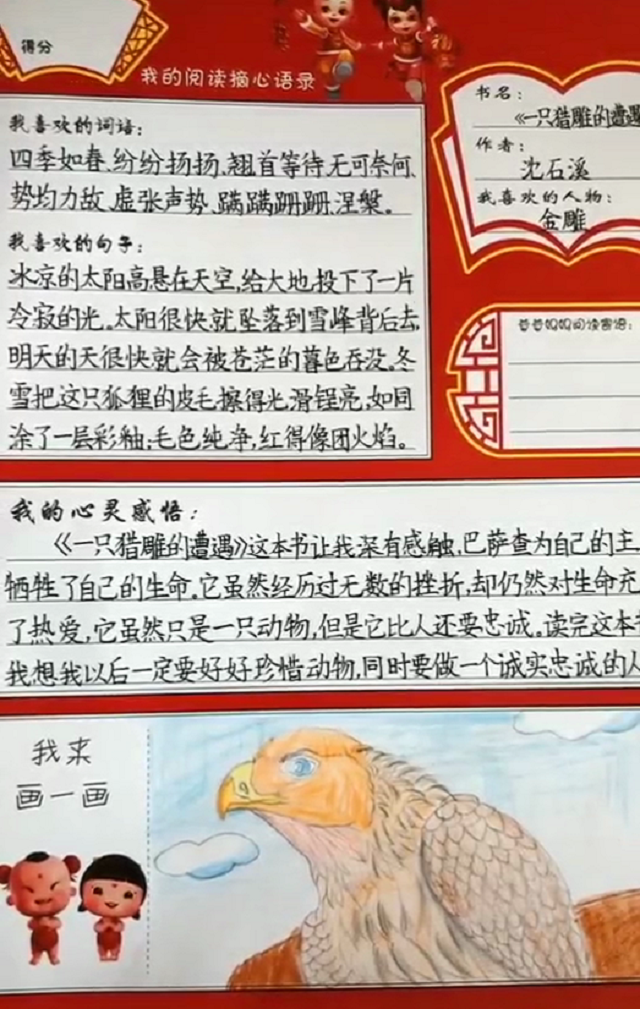 得分
我的阅读摘心语录
我喜欢的词语：
四季如春、纷纷扬扬、翘首等待、无可奈何、
势均力敌、虚张声势、蹒蹒跚跚、涅槃。
我喜欢的句子：
冰凉的太阳高悬在天空,给大地投下了一片
冷寂的光。太阳很快就坠落到雪峰背后去,
明天的天很快就会被苍茫的暮色吞没。冬
雪把这只狐狸的皮毛擦得光滑锃亮,如同
涂了一层彩釉;毛色纯净,红得像团火焰。
书名：
《一只猎雕的遭遇
作者：
沈石溪
我喜欢的人物：
金雕
爸爸妈妈阅读寄语：
我的心灵感悟：
《一只猎雕的遭遇》这本书让我深有感触,巴萨查为自己的主
牺牲了自己的生命。它虽然经历过无数的挫折,却仍然对生命充
了热爱,它虽然只是一只动物,但是它比人还要忠诚。读完这本
我想我以后一定要好好珍惜动物,同时要做一个诚实忠诚的人
我来
画一画